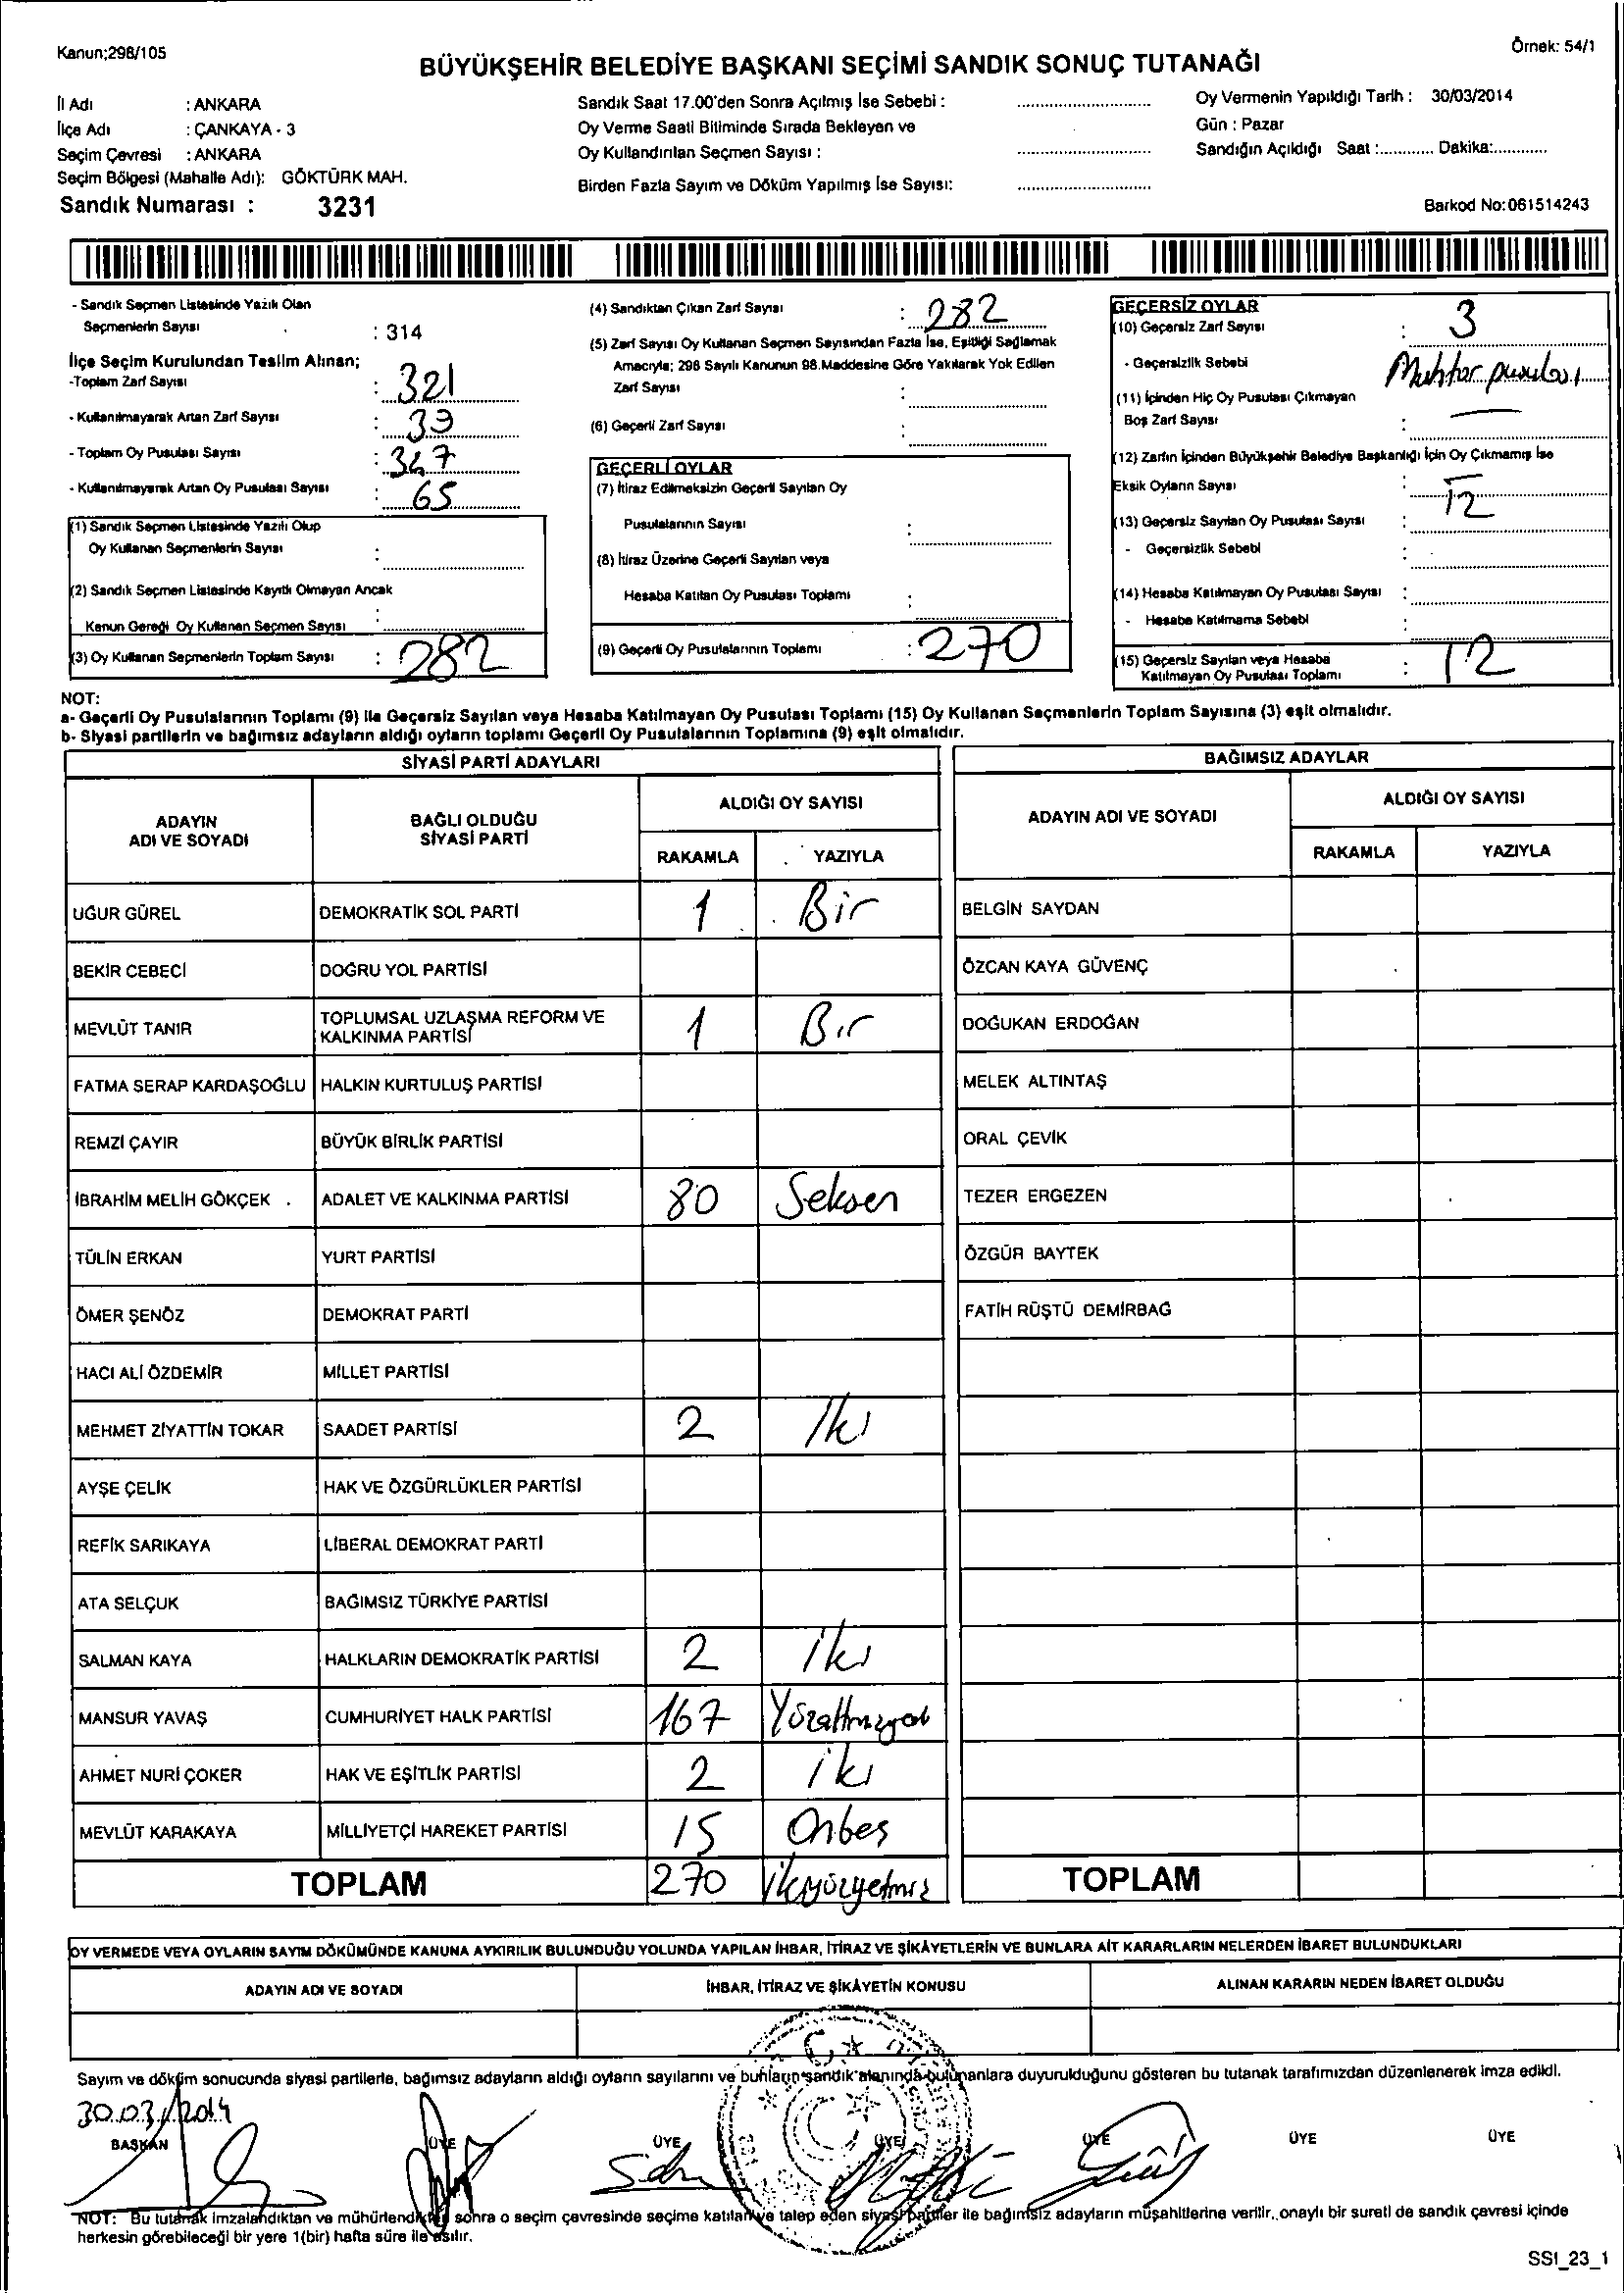 Kanun;298/105
Örnek: 54/1
BÜYÜKŞEHİR BELEDİYE BAŞKANI SEÇİMİ SANDIK SONUÇ TUTANAĞI
İl Adı : ANKARA
İlçe Adı : ÇANKAYA - 3
Seçim Çevresi : ANKARA
Seçim Bölgesi (Mahalle Adı): GÖKTÜRK MAH.
Sandık Numarası : 3231
Sandık Saat 17.00'den Sonra Açılmış İse Sebebi :
Oy Verme Saati Bitiminde Sırada Bekleyen ve
Oy Kullandırılan Seçmen Sayısı :
Birden Fazla Sayım ve Döküm Yapılmış İse Sayısı:
Oy Vermenin Yapıldığı Tarih : 30/03/2014
Gün : Pazar
Sandığın Açıldığı Saat :............ Dakika:............
Barkod No:061514243
- Sandık Seçmen Listesinde Yazılı Olan
Seçmenlerin Sayısı : 314
İlçe Seçim Kurulundan Teslim Alınan;
-Toplam Zarf Sayısı : 321
- Kullanılmayarak Artan Zarf Sayısı : 39
- Toplam Oy Pusulası Sayısı : 347
- Kullanılmayarak Artan Oy Pusulası Sayısı : 65
(1) Sandık Seçmen Listesinde Yazılı Olup
Oy Kullanan Seçmenlerin Sayısı :
(2) Sandık Seçmen Listesinde Kayıtlı Olmayan Ancak
Kanun Gereği Oy Kullanan Seçmen Sayısı :
(3) Oy Kullanan Seçmenlerin Toplam Sayısı : 282
(4) Sandıktan Çıkan Zarf Sayısı : 282
(5) Zarf Sayısı Oy Kullanan Seçmen Sayısından Fazla İse, Eşitliği Sağlamak
Amacıyla; 298 Sayılı Kanunun 98.Maddesine Göre Yakılarak Yok Edilen
Zarf Sayısı :
(6) Geçerli Zarf Sayısı :
GEÇERLİ OYLAR
(7) İtiraz Edilmeksizin Geçerli Sayılan Oy
Pusulalarının Sayısı :
(8) İtiraz Üzerine Geçerli Sayılan veya
Hesaba Katılan Oy Pusulası Toplamı :
(9) Geçerli Oy Pusulalarının Toplamı : 270
GEÇERSİZ OYLAR
(10) Geçersiz Zarf Sayısı : 3
- Geçersizlik Sebebi Muhtar pusulası
(11) İçinden Hiç Oy Pusulası Çıkmayan
Boş Zarf Sayısı : —
(12) Zarfın İçinden Büyükşehir Belediye Başkanlığı İçin Oy Çıkmamış İse
Eksik Oyların Sayısı : 12
(13) Geçersiz Sayılan Oy Pusulası Sayısı :
- Geçersizlik Sebebi :
(14) Hesaba Katılmayan Oy Pusulası Sayısı :
- Hesaba Katılmama Sebebi :
(15) Geçersiz Sayılan veya Hesaba
Katılmayan Oy Pusulası Toplamı : 12
NOT:
a- Geçerli Oy Pusulalarının Toplamı (9) ile Geçersiz Sayılan veya Hesaba Katılmayan Oy Pusulası Toplamı (15) Oy Kullanan Seçmenlerin Toplam Sayısına (3) eşit olmalıdır.
b- Siyasi partilerin ve bağımsız adayların aldığı oyların toplamı Geçerli Oy Pusulalarının Toplamına (9) eşit olmalıdır.
SİYASİ PARTİ ADAYLARI
ADAYIN ADI VE SOYADI BAĞLI OLDUĞU SİYASİ PARTİ ALDIĞI OY SAYISI
RAKAMLA YAZIYLA
UĞUR GÜREL DEMOKRATİK SOL PARTİ 1 Bir
BEKİR CEBECİ DOĞRU YOL PARTİSİ
MEVLÜT TANIR TOPLUMSAL UZLAŞMA REFORM VE KALKINMA PARTİSİ 1 Bir
FATMA SERAP KARDAŞOĞLU HALKIN KURTULUŞ PARTİSİ
REMZİ ÇAYIR BÜYÜK BİRLİK PARTİSİ
İBRAHİM MELİH GÖKÇEK ADALET VE KALKINMA PARTİSİ 80 Seksen
TÜLİN ERKAN YURT PARTİSİ
ÖMER ŞENÖZ DEMOKRAT PARTİ
HACI ALİ ÖZDEMİR MİLLET PARTİSİ
MEHMET ZİYATTİN TOKAR SAADET PARTİSİ 2 İki
AYŞE ÇELİK HAK VE ÖZGÜRLÜKLER PARTİSİ
REFİK SARIKAYA LİBERAL DEMOKRAT PARTİ
ATA SELÇUK BAĞIMSIZ TÜRKİYE PARTİSİ
SALMAN KAYA HALKLARIN DEMOKRATİK PARTİSİ 2 iki
MANSUR YAVAŞ CUMHURİYET HALK PARTİSİ 167 Yüzaltmışyedi
AHMET NURİ ÇOKER HAK VE EŞİTLİK PARTİSİ 2 iki
MEVLÜT KARAKAYA MİLLİYETÇİ HAREKET PARTİSİ 15 Onbeş
TOPLAM 270 ikiyüzyetmiş
BAĞIMSIZ ADAYLAR
ADAYIN ADI VE SOYADI ALDIĞI OY SAYISI
RAKAMLA YAZIYLA
BELGİN SAYDAN
ÖZCAN KAYA GÜVENÇ
DOĞUKAN ERDOĞAN
MELEK ALTINTAŞ
ORAL ÇEVİK
TEZER ERGEZEN
ÖZGÜR BAYTEK
FATİH RÜŞTÜ DEMİRBAĞ
TOPLAM
OY VERMEDE VEYA OYLARIN SAYIM DÖKÜMÜNDE KANUNA AYKIRILIK BULUNDUĞU YOLUNDA YAPILAN İHBAR, İTİRAZ VE ŞİKÂYETLERİN VE BUNLARA AİT KARARLARIN NELERDEN İBARET BULUNDUKLARI
ADAYIN ADI VE SOYADI İHBAR, İTİRAZ VE ŞİKÂYETİN KONUSU ALINAN KARARIN NEDEN İBARET OLDUĞU
Sayım ve döküm sonucunda siyasi partilerle, bağımsız adayların aldığı oyların sayılarını ve bunların sandık alanında bulunanlara duyurulduğunu gösteren bu tutanak tarafımızdan düzenlenerek imza edildi.
30.03./2014
BAŞKAN ÜYE ÜYE ÜYE ÜYE ÜYE ÜYE
NOT: Bu tutanak imzalandıktan ve mühürlendikten sonra o seçim çevresinde seçime katılan ve talep eden siyasi partiler ile bağımsız adayların müşahitlerine verilir, onaylı bir sureti de sandık çevresi içinde
herkesin görebileceği bir yere 1(bir) hafta süre ile asılır.
SSI_23_1